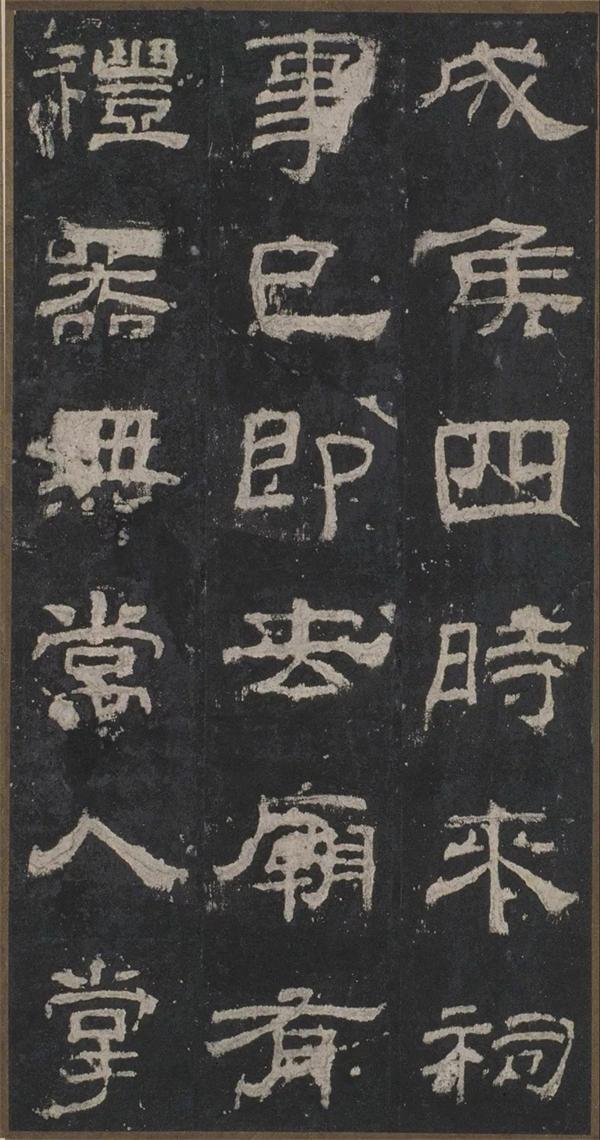 成侯四時來祠
事已即去廟有
禮器無常人掌